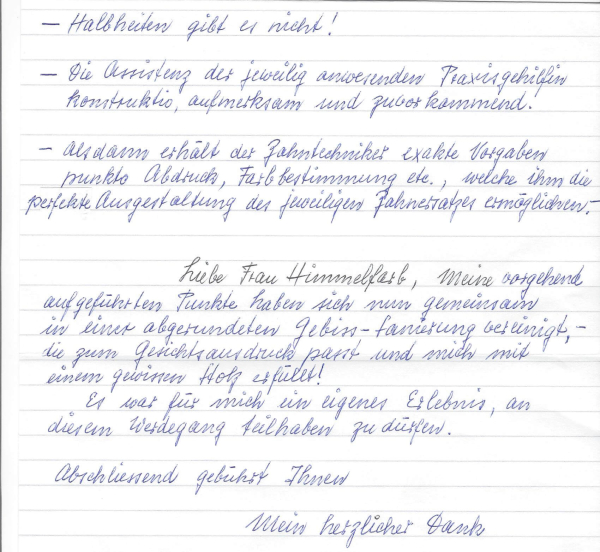 – Halbheiten gibt es nicht!
– Die Assistenz der jeweilig anwesenden Praxisgehilfin
konstruktiv, aufmerksam und zuvorkommend.
– alsdann erhält der Zahntechniker exakte Vorgaben
punkto Abdruck, Farbbestimmung etc., welche ihm die
perfekte Ausgestaltung des jeweiligen Zahnersatzes ermöglichen.–
Liebe Frau Himmelfarb, Meine vorgehend
aufgeführten Punkte haben sich nun gemeinsam
in einer abgerundeten Gebiss-Sanierung vereinigt,–
die zum Gesichtsausdruck passt und mich mit
einem gewissen Stolz erfüllt!
Es war für mich ein eigenes Erlebnis, an
diesem Werdegang teilhaben zu dürfen.
Abschliessend gebührt Ihnen
Mein herzlicher Dank